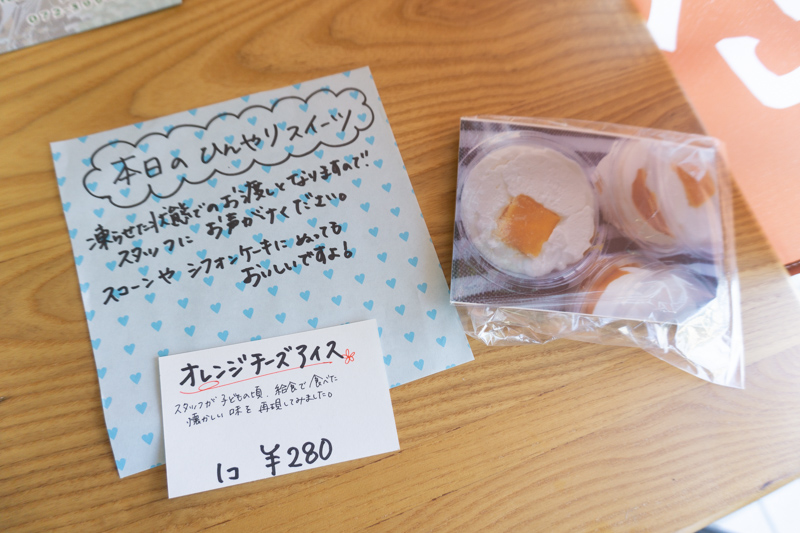 本日のひんやりスイーツ
凍らせた状態でのお渡しとなりますので!
スタッフに お声がけください。
スコーンや シフォンケーキに ぬっても
おいしいですよ!
オレンジチーズアイス
スタッフが子どもの頃、給食で食べた
懐かしい味を再現してみました。
1コ ¥280